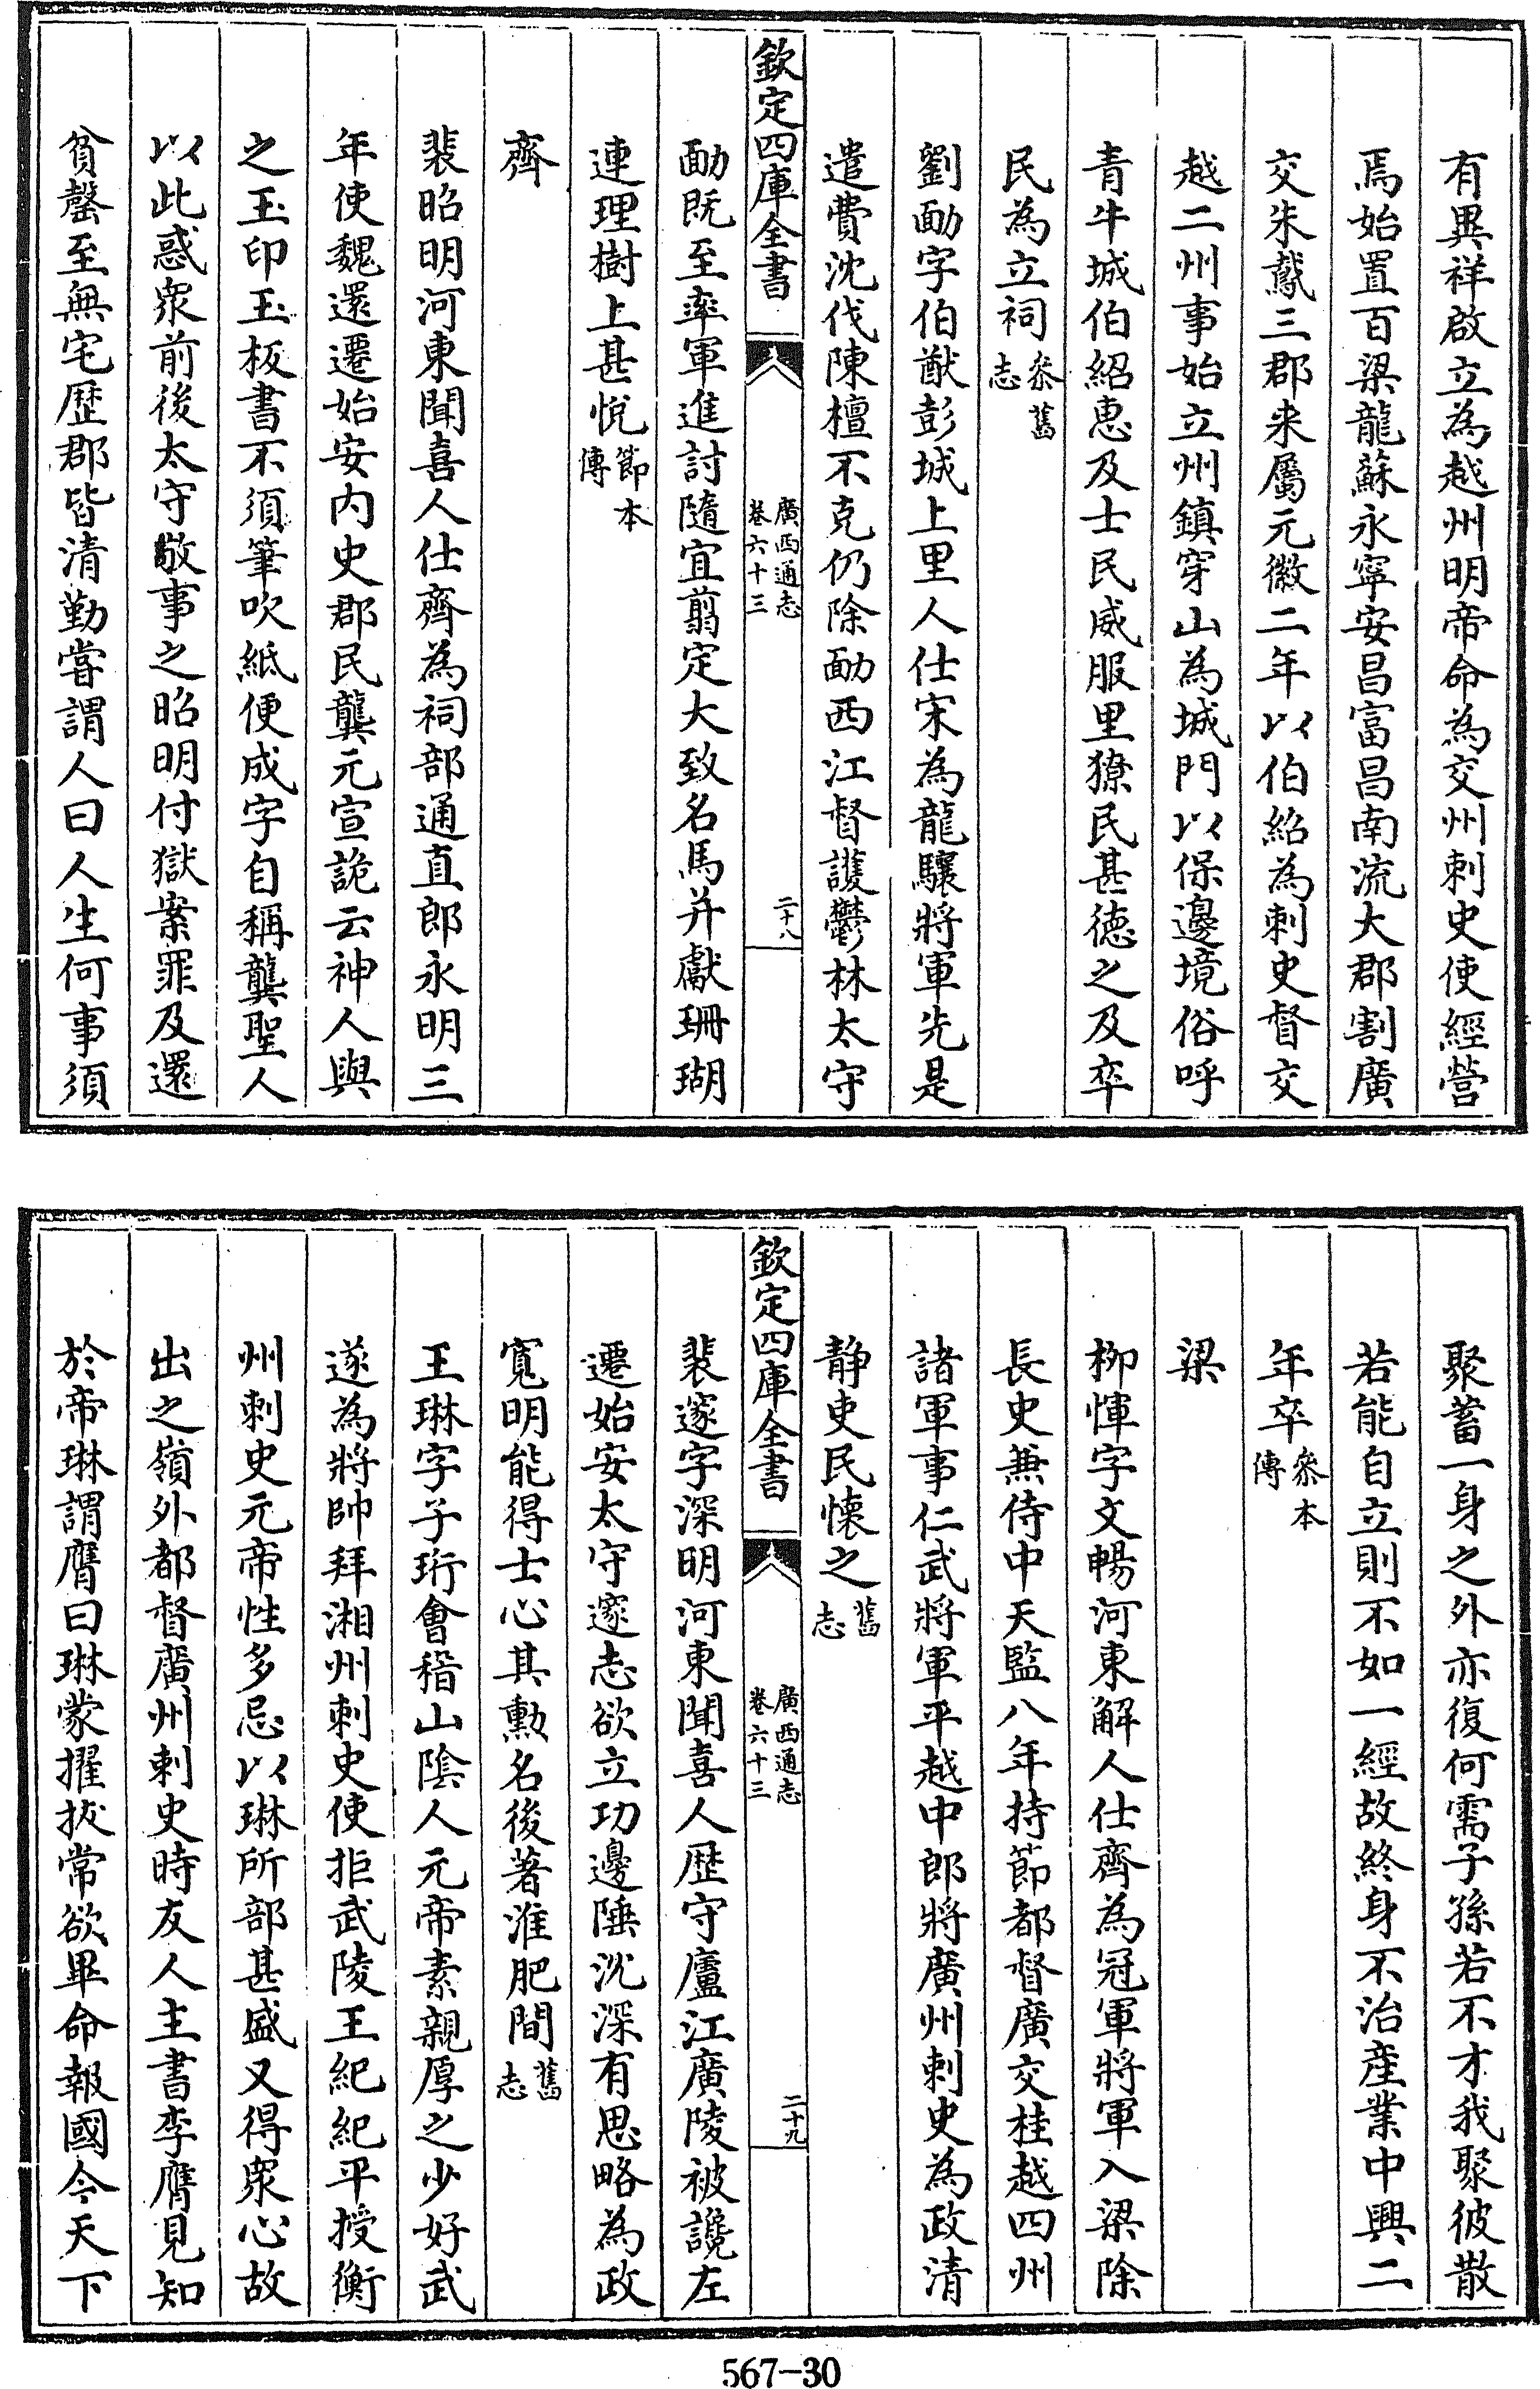 有異祥啟立為越州明帝命為交州刺史使經營
焉始置百梁龍蘇永寧安昌富昌南流大郡割廣
交朱鳶三郡来屬元徽二年以伯紹為刺史督交
越二州事始立州鎮穿山為城門以保邊境俗呼
青牛城伯紹惠及士民威服里獠民甚徳之及卒
民為立祠叅舊志
劉勔字伯猷彭城上里人仕宋為龍驤將軍先是
遣費沈伐陳檀不克仍除勔西江督護鬱林太守
欽定四庫全書
廣西通志
卷六十三
二十八
勔既至率軍進討隨宜翦定大致名馬并獻珊瑚
連理樹上甚悅節本傳
齊
裴昭明河東聞喜人仕齊為祠部通直郎永明三
年使魏還遷始安内史郡民龔元宣詭云神人與
之玉印玉板書不須筆吹紙便成字自稱龔聖人
以此惑衆前後太守敬事之昭明付獄案罪及還
貧罄至無宅歴郡皆清勤嘗謂人曰人生何事須
聚蓄一身之外亦復何需子孫若不才我聚彼散
若能自立則不如一經故終身不治産業中興二
年卒叅本傳
梁
柳惲字文暢河東解人仕齊為冠軍將軍入梁除
長史兼侍中天監八年持節都督廣交桂越四州
諸軍事仁武將軍平越中郎將廣州刺史為政清
静吏民懷之舊志
欽定四庫全書
廣西通志
卷六十三
二十九
裴邃字深明河東聞喜人歴守廬江廣陵被讒左
遷始安太守邃志欲立功邊陲沈深有思略為政
寛明能得士心其勳名後著淮肥間舊志
王琳字子珩會稽山陰人元帝素親厚之少好武
遂為將帥拜湘州刺史使拒武陵王紀紀平授衡
州刺史元帝性多忌以琳所部甚盛又得衆心故
出之嶺外都督廣州刺史時友人主書李膺見知
於帝琳謂膺曰琳蒙擢拔常欲畢命報國今天下
567-30